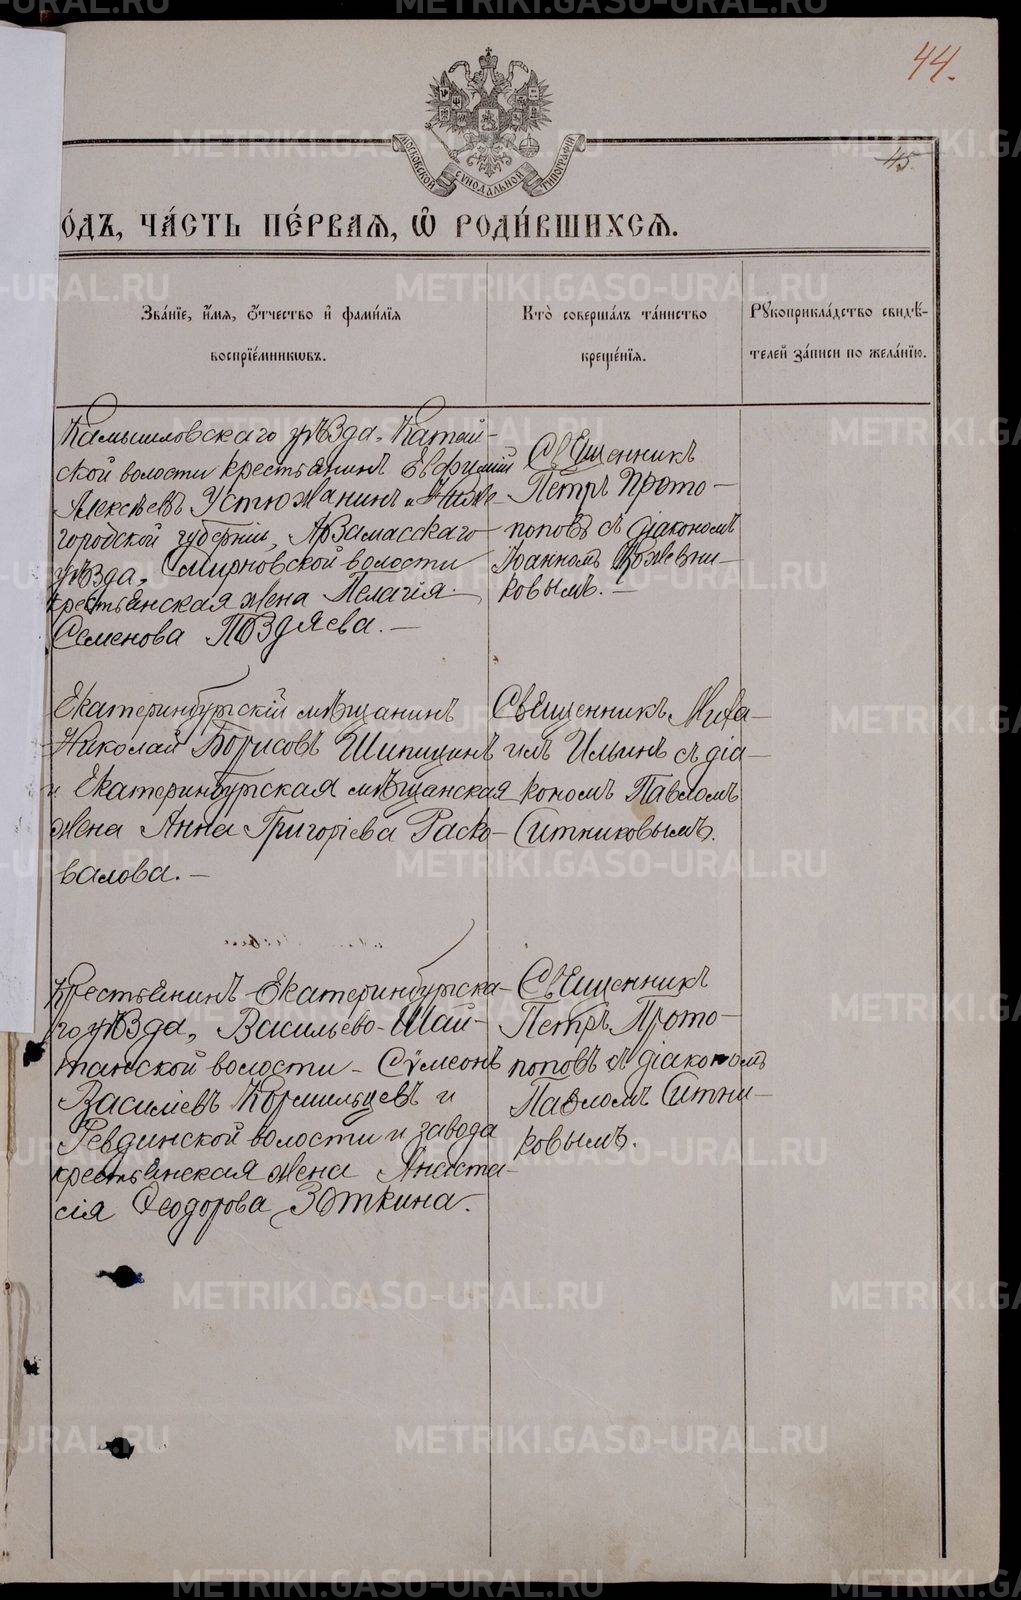 44.
45.
МОСКОВСКОЙ СѴНОДАЛЬНОЙ ТИПОГРАФІИ
О́ДЪ, ЧА́СТЬ ПЕ́РВАѦ, Ѽ РОДИ́ВШИХСѦ.
Зва́нїе, и҆́мѧ, ѻ҆́тчество и҆ фами́лїѧ
воспрїе́мникѡвъ.
Кто̀ соверша́лъ та́инство
креще́нїѧ.
Рꙋкоприкла́дство свидѣ́-
телей за́писи по жела́нїю.
Камышловскаго уѣзда, Катай-
ской волости крестьянинъ Евфимій
Алексѣевъ Устюжанинъ и Ниже-
городской губерніи, Арзамасскаго
уѣзда, Смирновской волости
крестьянская жена Пелагія
Семенова Поздяева. —
Священникъ
Петръ Прото-
поповъ съ діакономъ
Іоанномъ Кожевни-
ковымъ. —
Екатеринбургскій мѣщанинъ
Николай Борисовъ Шипицинъ
и Екатеринбургская мѣщанская
жена Анна Григоріева Раско-
валова. —
Священникъ Миха-
илъ Ильинъ съ діа-
кономъ Павломъ
Ситниковымъ.
Крестьянинъ Екатеринбургска-
го уѣзда, Васильево-Шай-
танской волости - Сѵмеонъ
Василіевъ Кормильцевъ и
Ревдинской волости и завода
крестьянская жена Анаста-
сія Ѳеодорова Зюткина.
Священникъ
Петръ Прото-
поповъ съ діакономъ
Павломъ Ситни-
ковымъ.
METRIKI.GASO-URAL.RU